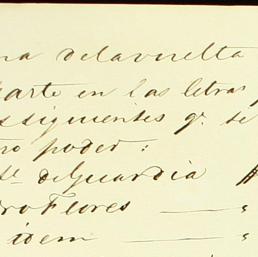 na delavuelta
parte en las letras
ssiguientes qe. se
tro poder:
Sr. de Guardia
dro Flores — "
idem — "